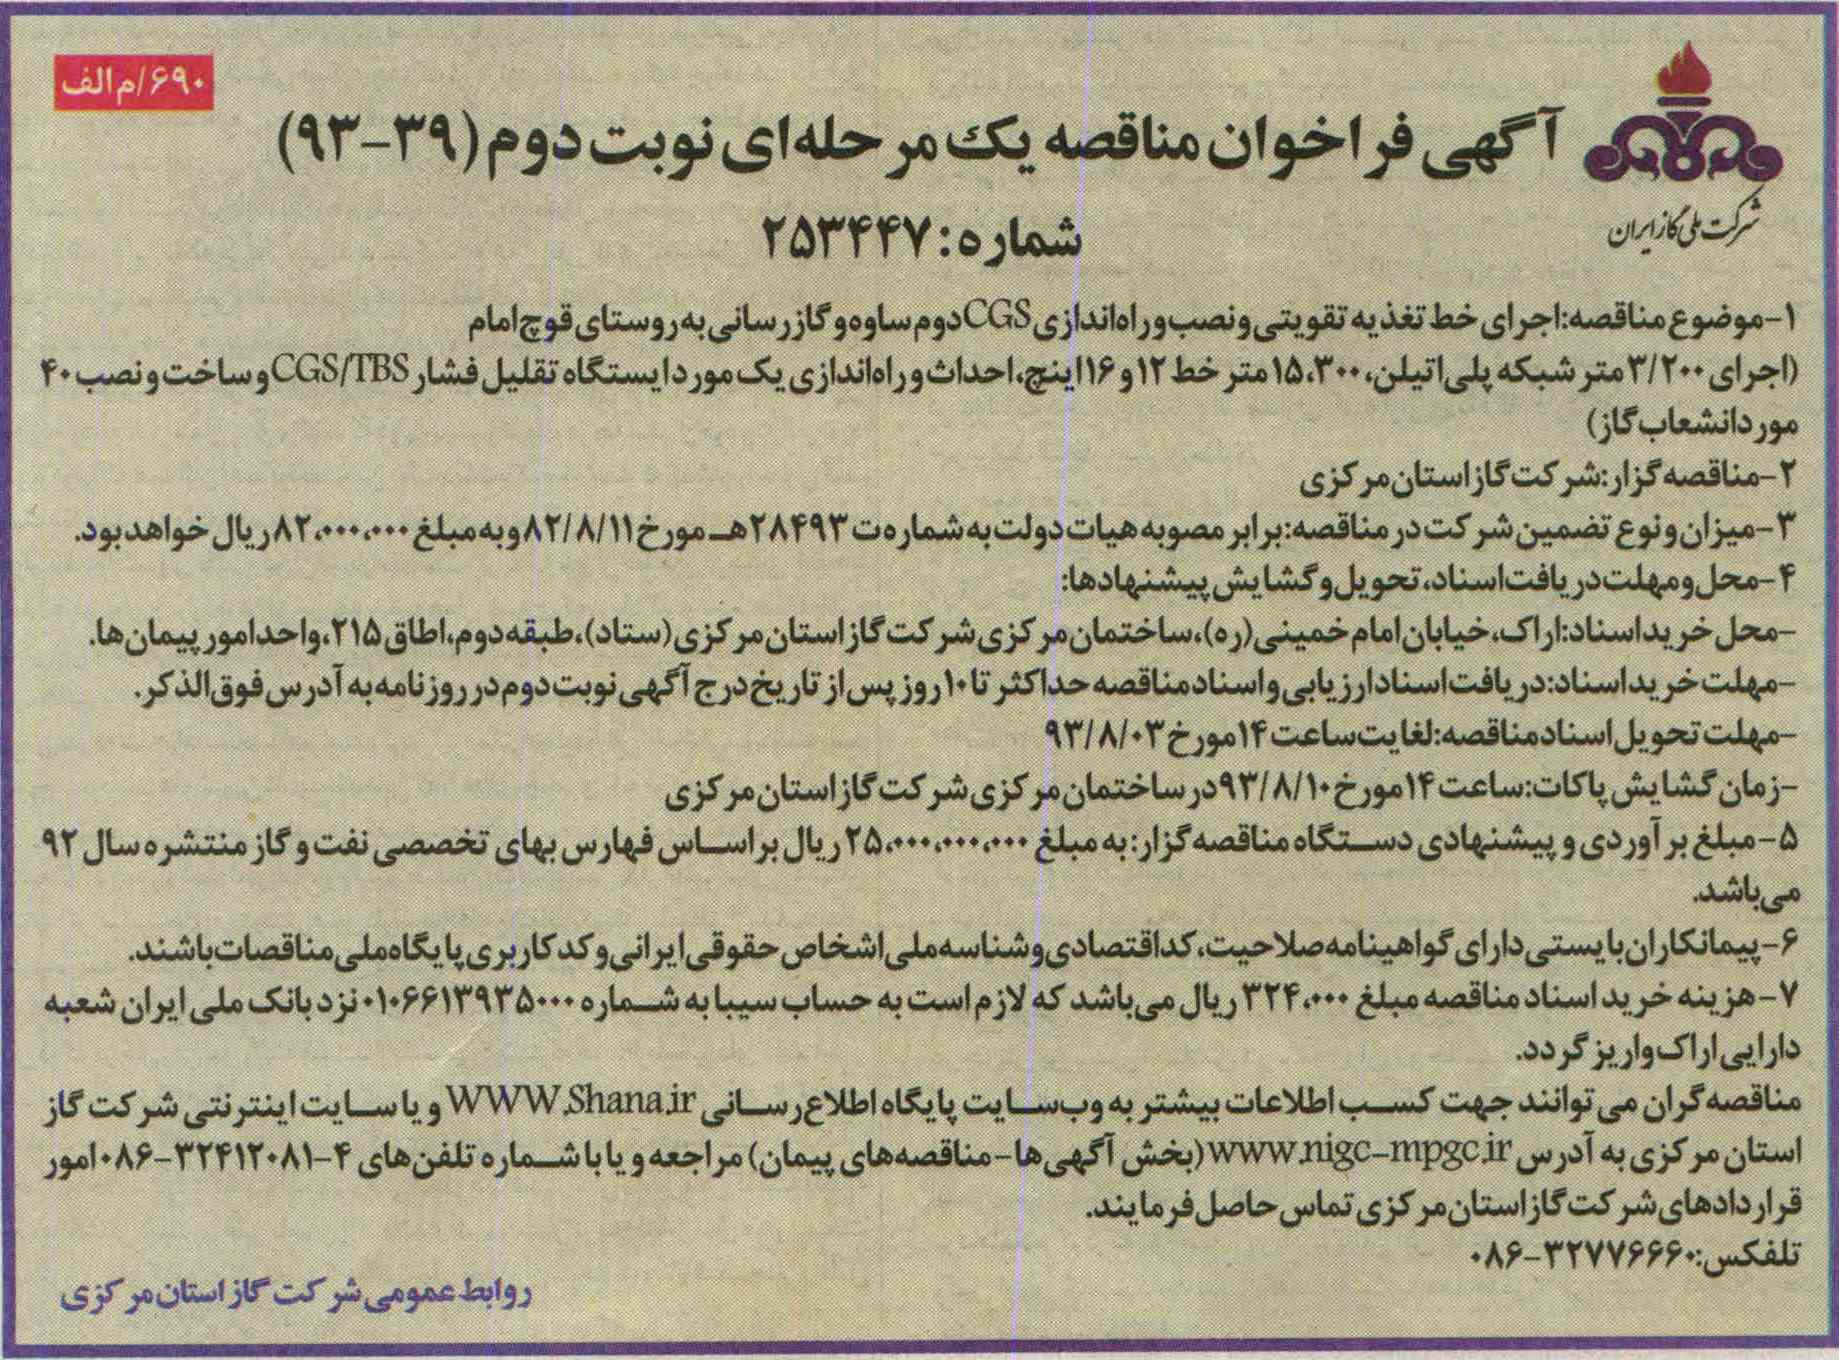 ۶۹۰/م الف
آگهی فراخوان مناقصه یک مرحله‌ای نوبت دوم (۳۹-۹۳)
شرکت ملی گاز ایران
شماره: ۲۵۳۴۴۷
۱-موضوع مناقصه: اجرای خط تغذیه تقویتی و نصب و راه‌اندازی CGS دوم ساوه و گازرسانی به روستای قوچ امام
(اجرای ۳/۲۰۰ متر شبکه پلی‌اتیلن، ۱۵،۳۰۰ متر خط ۱۲ و ۱۶ اینچ، احداث و راه‌اندازی یک مورد ایستگاه تقلیل فشار CGS/TBS و ساخت و نصب ۴۰
مورد انشعاب گاز)
۲-مناقصه گزار: شرکت گاز استان مرکزی
۳-میزان و نوع تضمین شرکت در مناقصه: برابر مصوبه هیات دولت به شماره ت ۲۸۴۹۳هـ مورخ ۸۲/۸/۱۱ و به مبلغ ۸۲،۰۰۰،۰۰۰ ریال خواهد بود.
۴-محل و مهلت دریافت اسناد، تحویل و گشایش پیشنهادها:
-محل خرید اسناد: اراک، خیابان امام خمینی (ره)، ساختمان مرکزی شرکت گاز استان مرکزی (ستاد)، طبقه دوم، اطاق ۲۱۵، واحد امور پیمان‌ها.
-مهلت خرید اسناد: دریافت اسناد ارزیابی و اسناد مناقصه حداکثر تا ۱۰ روز پس از تاریخ درج آگهی نوبت دوم در روزنامه به آدرس فوق الذکر.
-مهلت تحویل اسناد مناقصه: لغایت ساعت ۱۴ مورخ ۹۳/۸/۰۳
-زمان گشایش پاکات: ساعت ۱۴ مورخ ۹۳/۸/۱۰ در ساختمان مرکزی شرکت گاز استان مرکزی
۵-مبلغ برآوردی و پیشنهادی دستگاه مناقصه گزار: به مبلغ ۲۵،۰۰۰،۰۰۰،۰۰۰ ریال براساس فهارس بهای تخصصی نفت و گاز منتشره سال ۹۲
می‌باشد.
۶-پیمانکاران بایستی دارای گواهینامه صلاحیت، کد اقتصادی و شناسه ملی اشخاص حقوقی ایرانی و کد کاربری پایگاه ملی مناقصات باشند.
۷-هزینه خرید اسناد مناقصه مبلغ ۳۲۴،۰۰۰ ریال می‌باشد که لازم است به حساب سیبا به شماره ۰۱۰۶۶۱۳۹۳۵۰۰۰ نزد بانک ملی ایران شعبه
دارایی اراک واریز گردد.
مناقصه گران می توانند جهت کسب اطلاعات بیشتر به وب‌سایت پایگاه اطلاع‌رسانی WWW.Shana.ir و یا سایت اینترنتی شرکت گاز
استان مرکزی به آدرس www.nigc-mpgc.ir (بخش آگهی‌ها-مناقصه‌های پیمان) مراجعه و یا با شماره تلفن‌های ۴-۳۲۴۱۲۰۸۱-۰۸۶ امور
قراردادهای شرکت گاز استان مرکزی تماس حاصل فرمایند.
تلفکس: ۳۲۷۷۶۶۶۰-۰۸۶
روابط عمومی شرکت گاز استان مرکزی